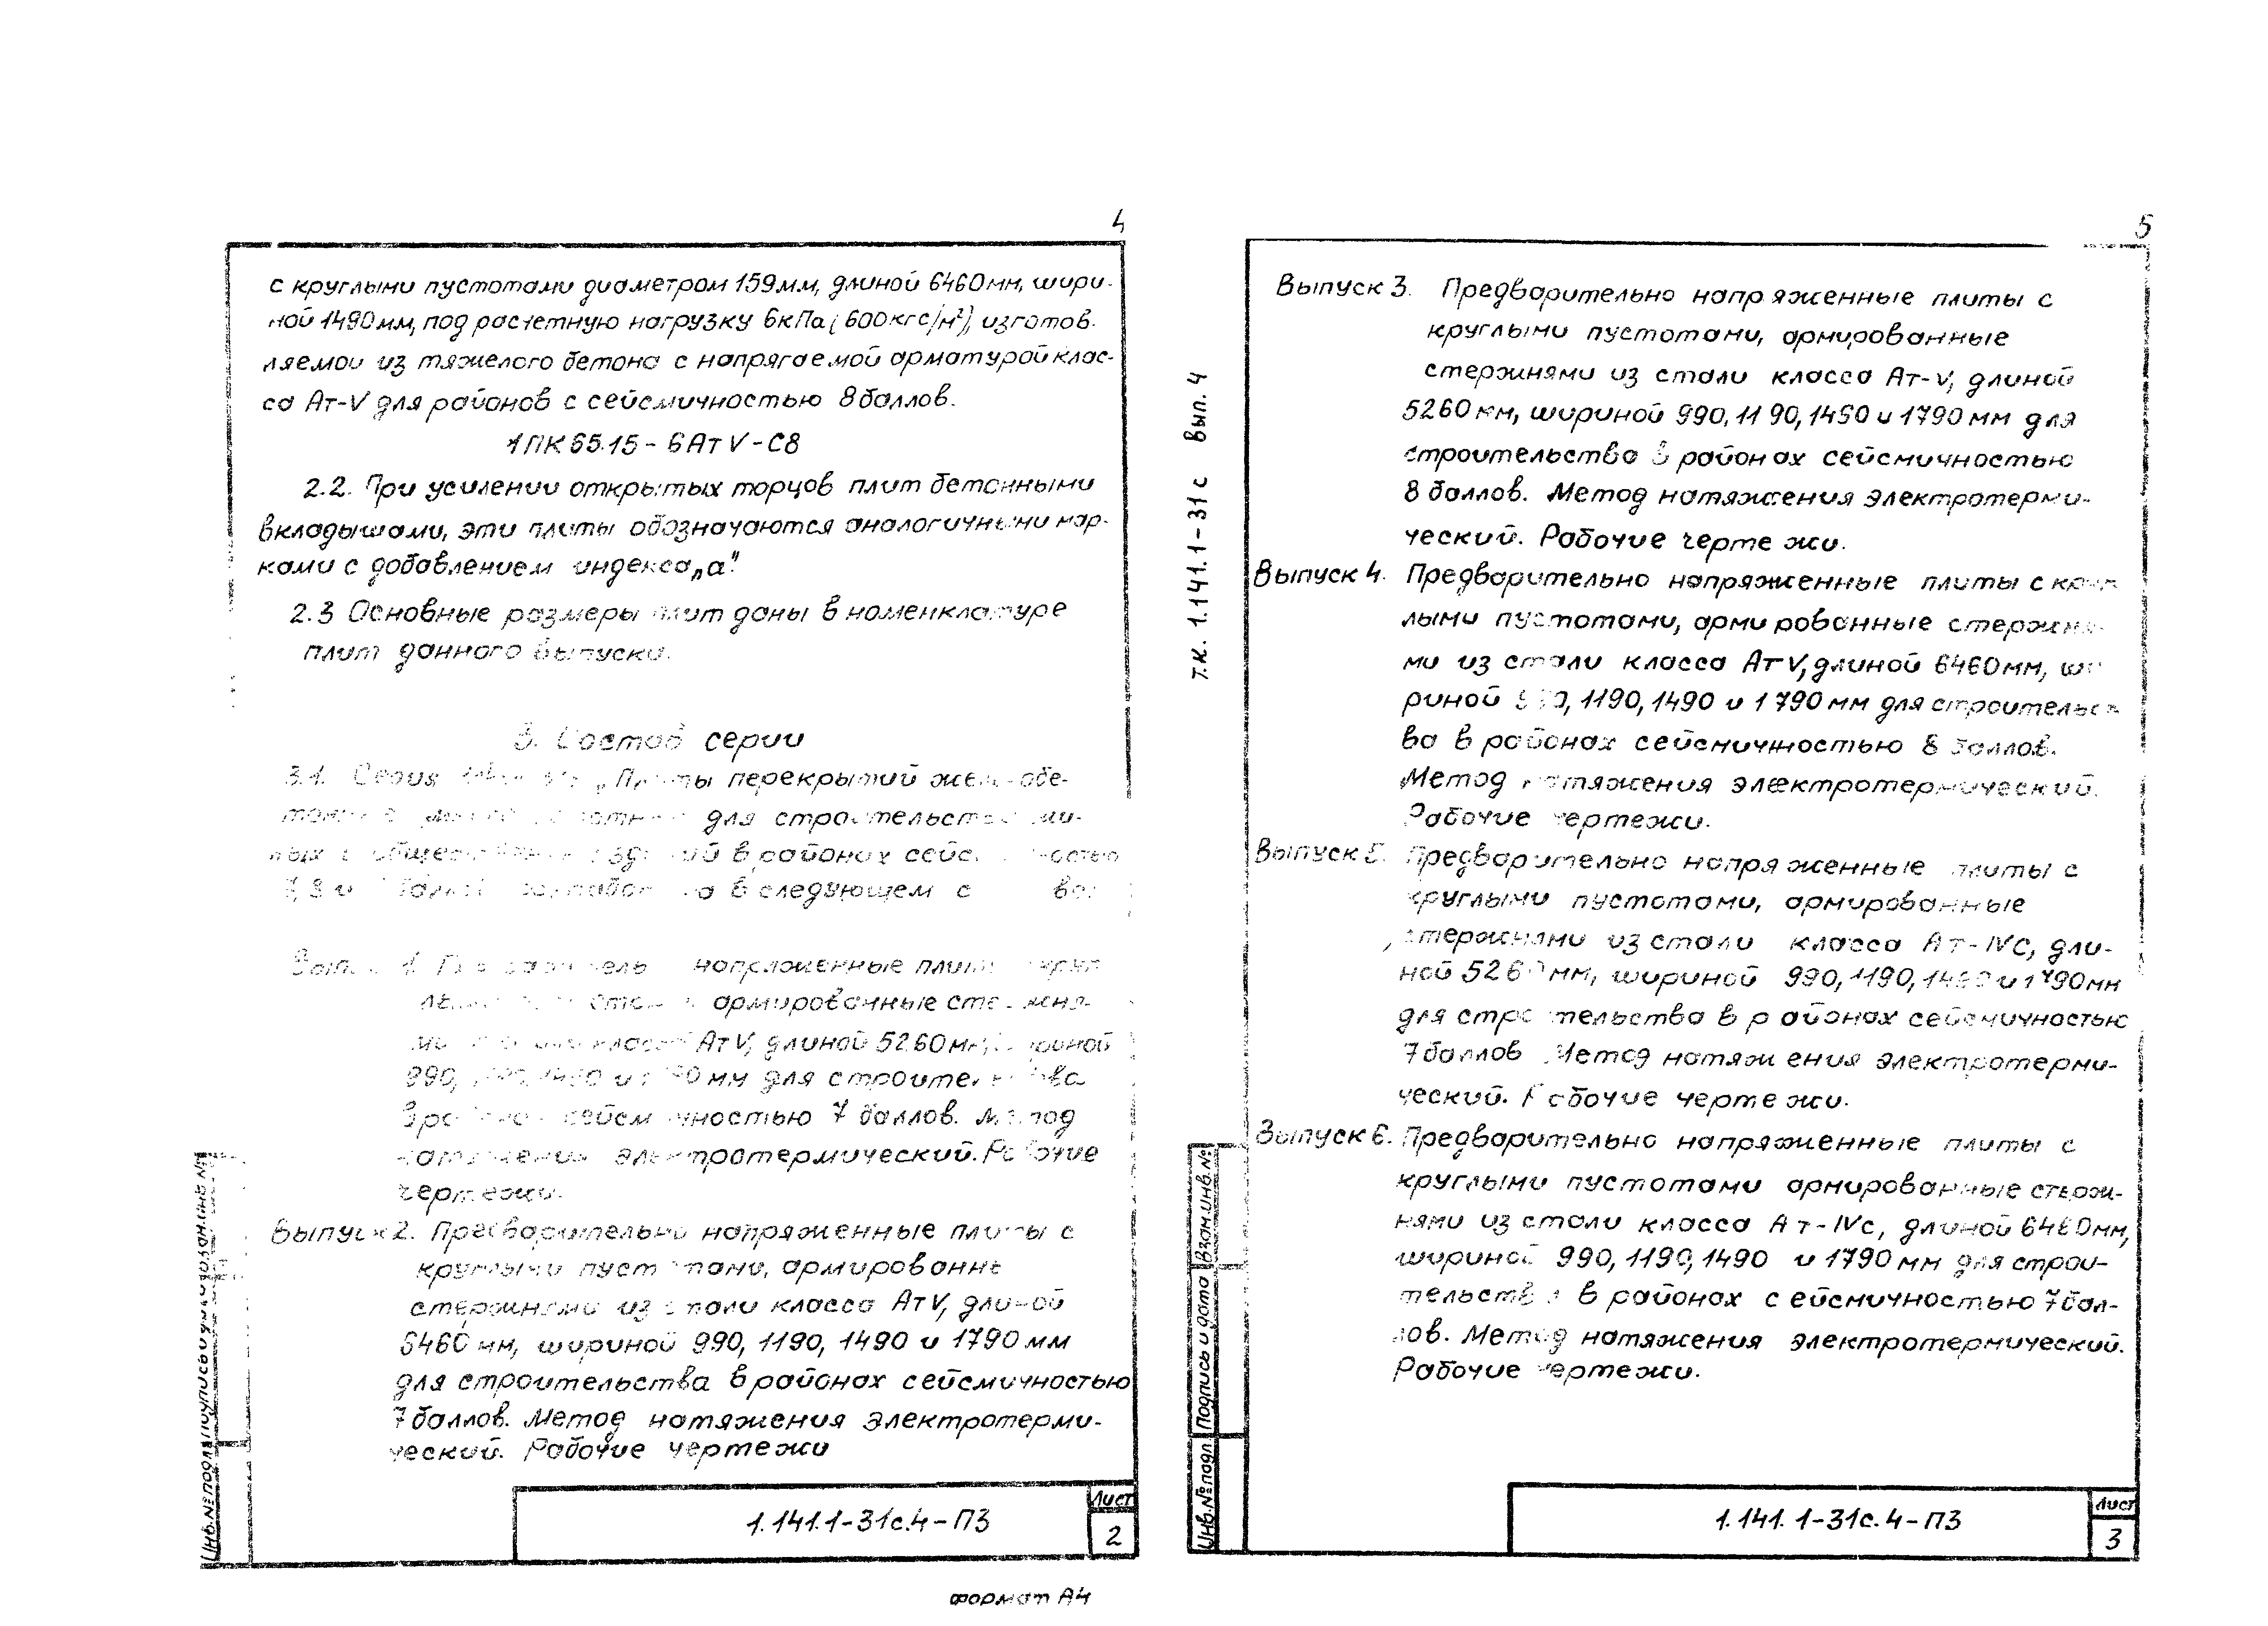 4
с круглыми пустотами диаметром 159мм, длиной 6460мм, шири-
ной 1490мм, под расчетную нагрузку 6кПа (600кгс/м²), изготов-
ляемой из тяжелого бетона с напрягаемой арматурой клас-
са Ат-V для районов с сейсмичностью 8 баллов.
1ПК 65.15 - 6АтV-С8
2.2. При усилении открытых торцов плит бетонными
вкладышами, эти плиты обозначаются аналогичными мар-
ками с добавлением индекса „а".
2.3 Основные размеры плит даны в номенклатуре
плит данного выпуска.
3. Состав серии
3.1. Серия „Плиты перекрытий
для строительства
в районах
в следующем
Выпуск 1. напряженные плиты
армированные
класса АтV, длиной 5260мм, шириной
990, 1490 и мм для строительства
сейсмичностью 7 баллов. Метод
натяжения электротермический. Рабочие
чертежи.
Выпуск 2. Предварительно напряженные плиты с
круглыми пустотами, армированные
стержнями из стали класса АтV, длиной
6460 мм, шириной 990, 1190, 1490 и 1790 мм
для строительства в районах сейсмичностью
7 баллов. Метод натяжения электротерми-
ческий. Рабочие чертежи
1.141.1-31с.4-ПЗ
Лист
2
Инв.№подл
формат А4
5
Т.К. 1.141.1-31с вып. 4
Выпуск 3. Предварительно напряженные плиты с
круглыми пустотами, армированные
стержнями из стали класса Ат-V, длиной
5260 мм, шириной 990, 1190, 1490 и 1790 мм для
строительства в районах сейсмичностью
8 баллов. Метод натяжения электротерми-
ческий. Рабочие чертежи.
Выпуск 4. Предварительно напряженные плиты с круг
лыми пустотами, армированные стержня-
ми из стали класса АтV, длиной 6460мм, ши
риной 990, 1190, 1490 и 1790 мм для строительст
ва в районах сейсмичностью 8 баллов.
Метод натяжения электротермический.
Рабочие чертежи.
Выпуск 5. Предварительно напряженные плиты с
круглыми пустотами, армированные
стержнями из стали класса Ат-IVС, дли-
ной 5260 мм, шириной 990, 1190, 1490 и 1790мм
для строительства в районах сейсмичностью
7 баллов Метод натяжения электротерми-
ческий. Рабочие чертежи.
Выпуск 6. Предварительно напряженные плиты с
круглыми пустотами армированные стерж-
нями из стали класса Ат-IVс, длиной 6460мм,
шириной 990, 1190, 1490 и 1790 мм для строи-
тельства в районах сейсмичностью 7 бал-
лов. Метод натяжения электротермический.
Рабочие чертежи.
Инв.№подл Подпись и дата Взам.инв.№
1.141.1-31с.4-ПЗ
Лист
3